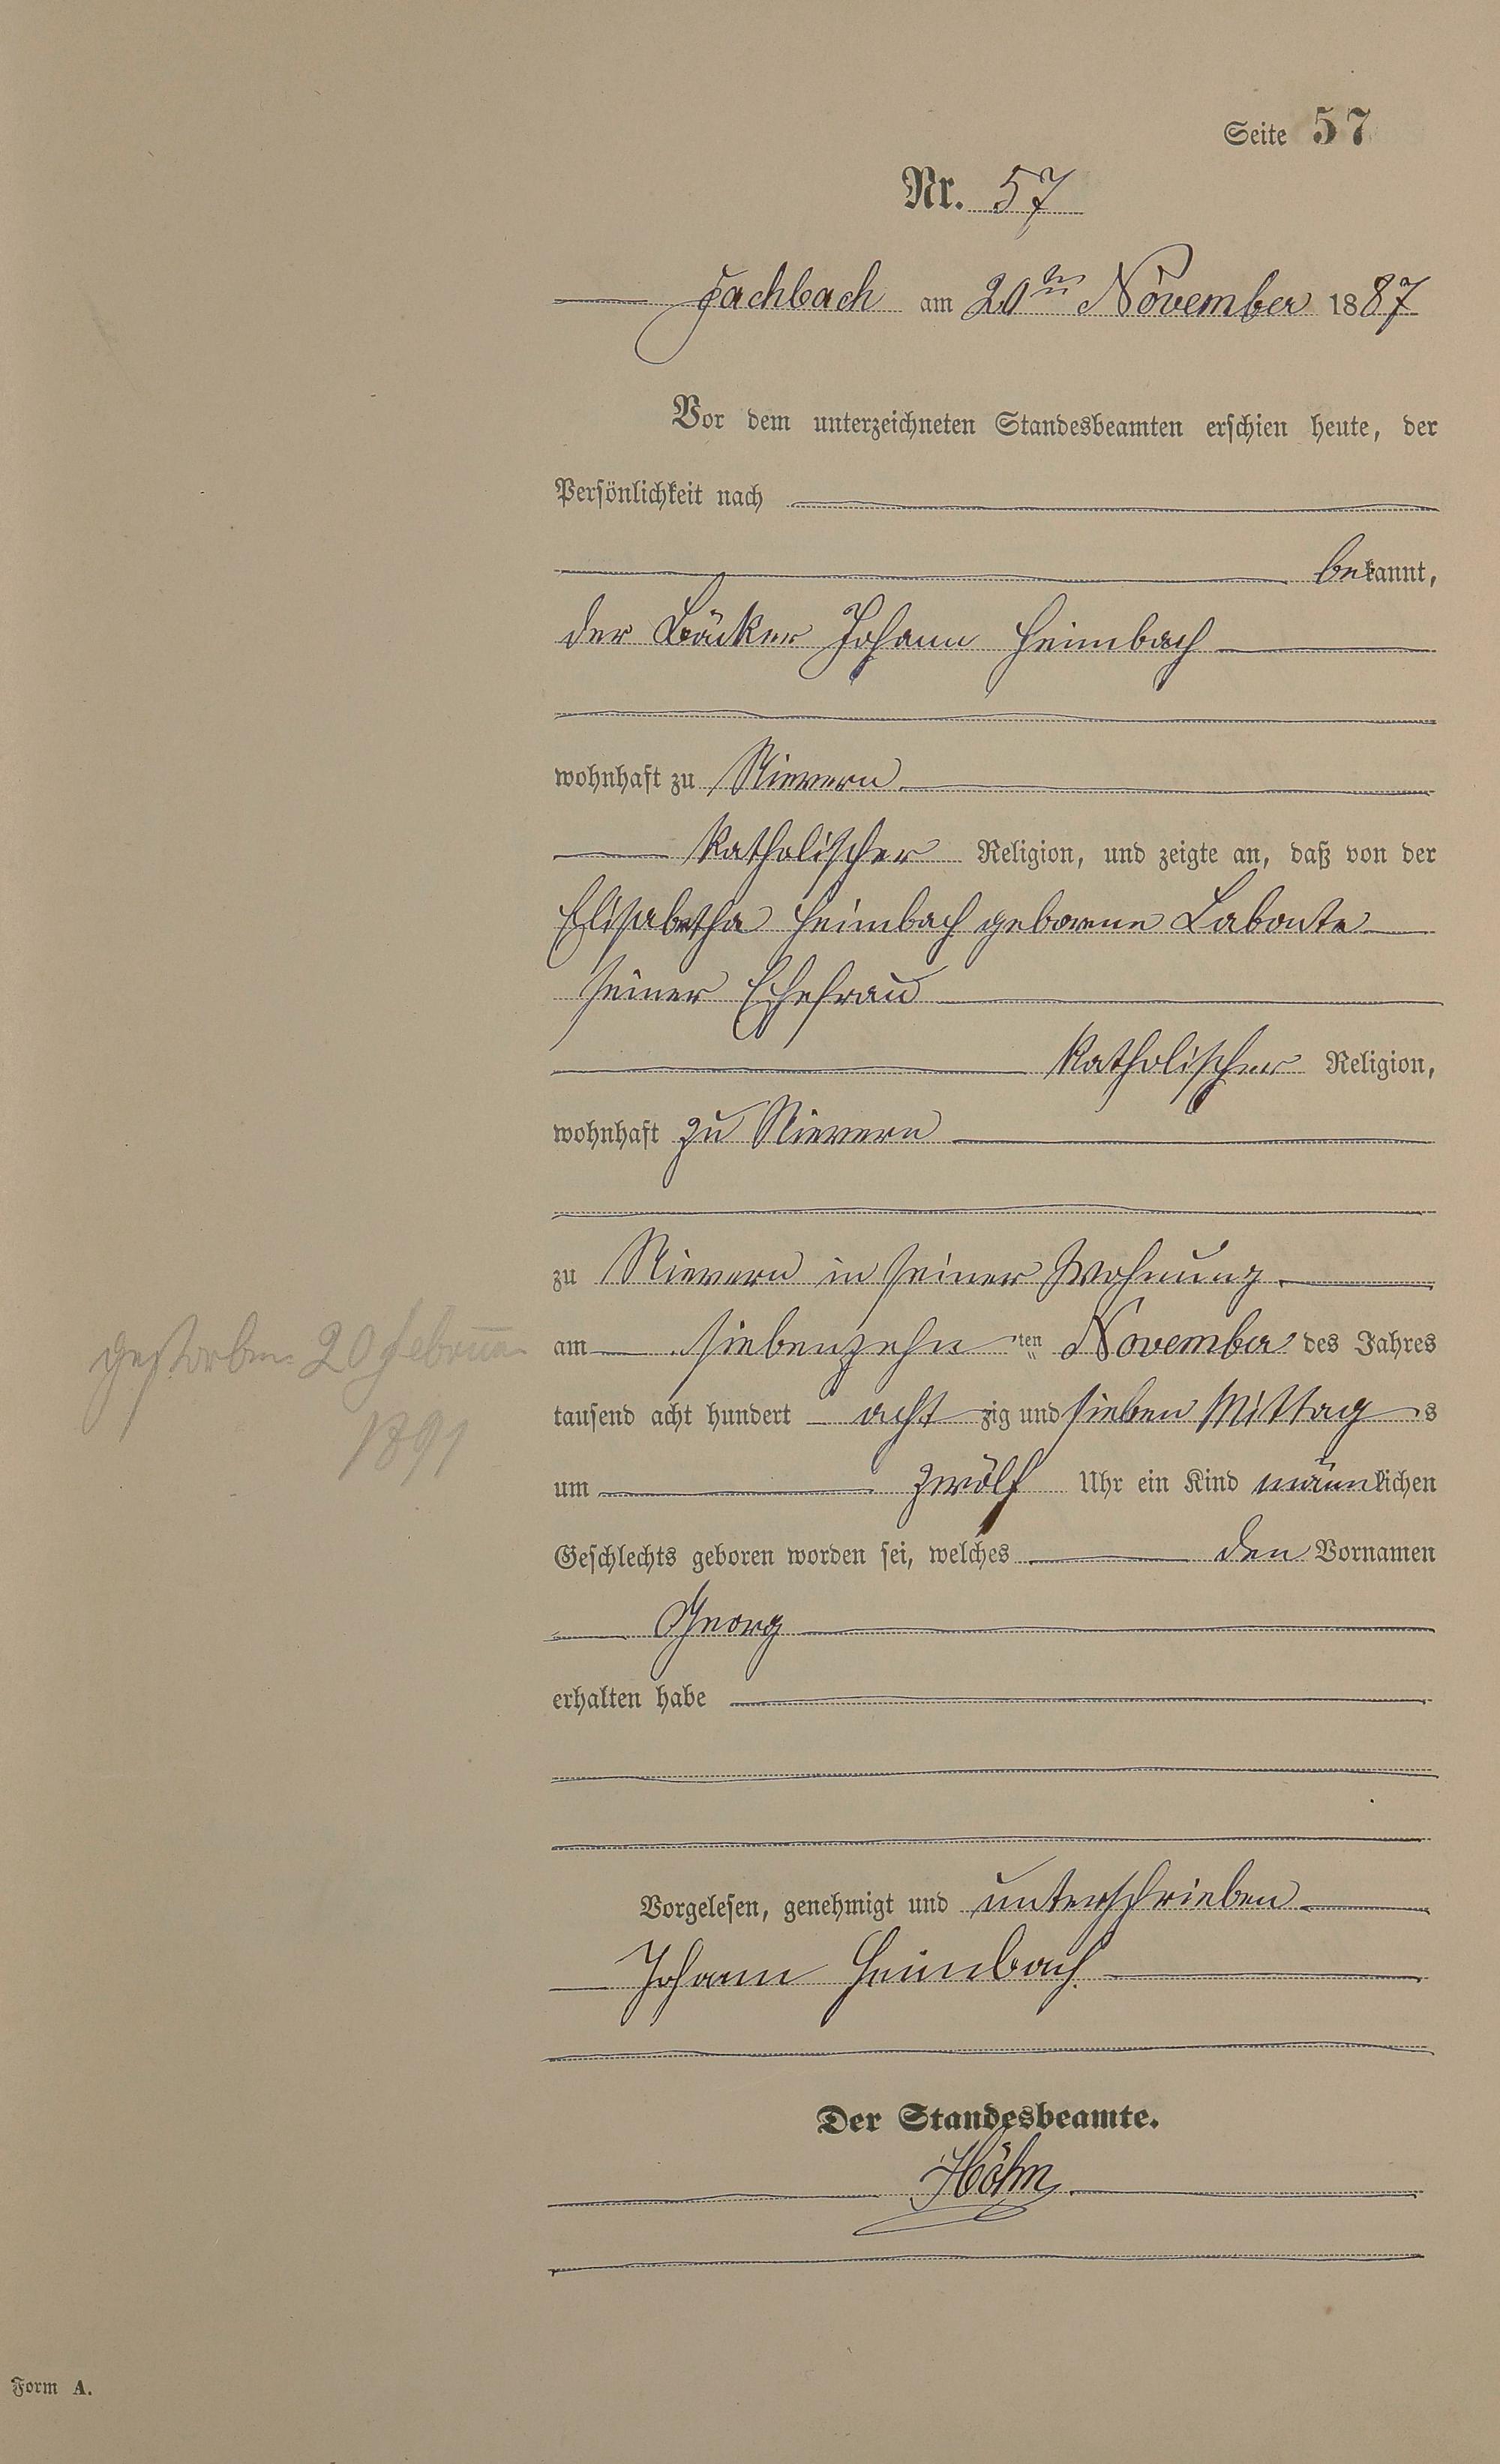 Seite 57
Nr. 57
Fachbach am 20ten November 1887
Vor dem unterzeichneten Standesbeamten erschien heute, der
Persönlichkeit nach
bekannt,
der Bäcker Johann Heimbach
wohnhaft zu Nievern
katholischer Religion, und zeigte an, daß von der
Elisabetha Heimbach geborene Labonte
seiner Ehefrau
katholischer Religion,
wohnhaft zu Nievern
zu Nievern in seiner Wohnung
gestorben 20 Februar
am siebenzehnten November des Jahres
1891
tausend acht hundert achtzig und sieben Mittags
um zwölf Uhr ein Kind männlichen
Geschlechts geboren worden sei, welches den Vornamen
Georg
erhalten habe
Vorgelesen, genehmigt und unterschrieben
Johann Heimbach
Der Standesbeamte.
Höhn
Form A.